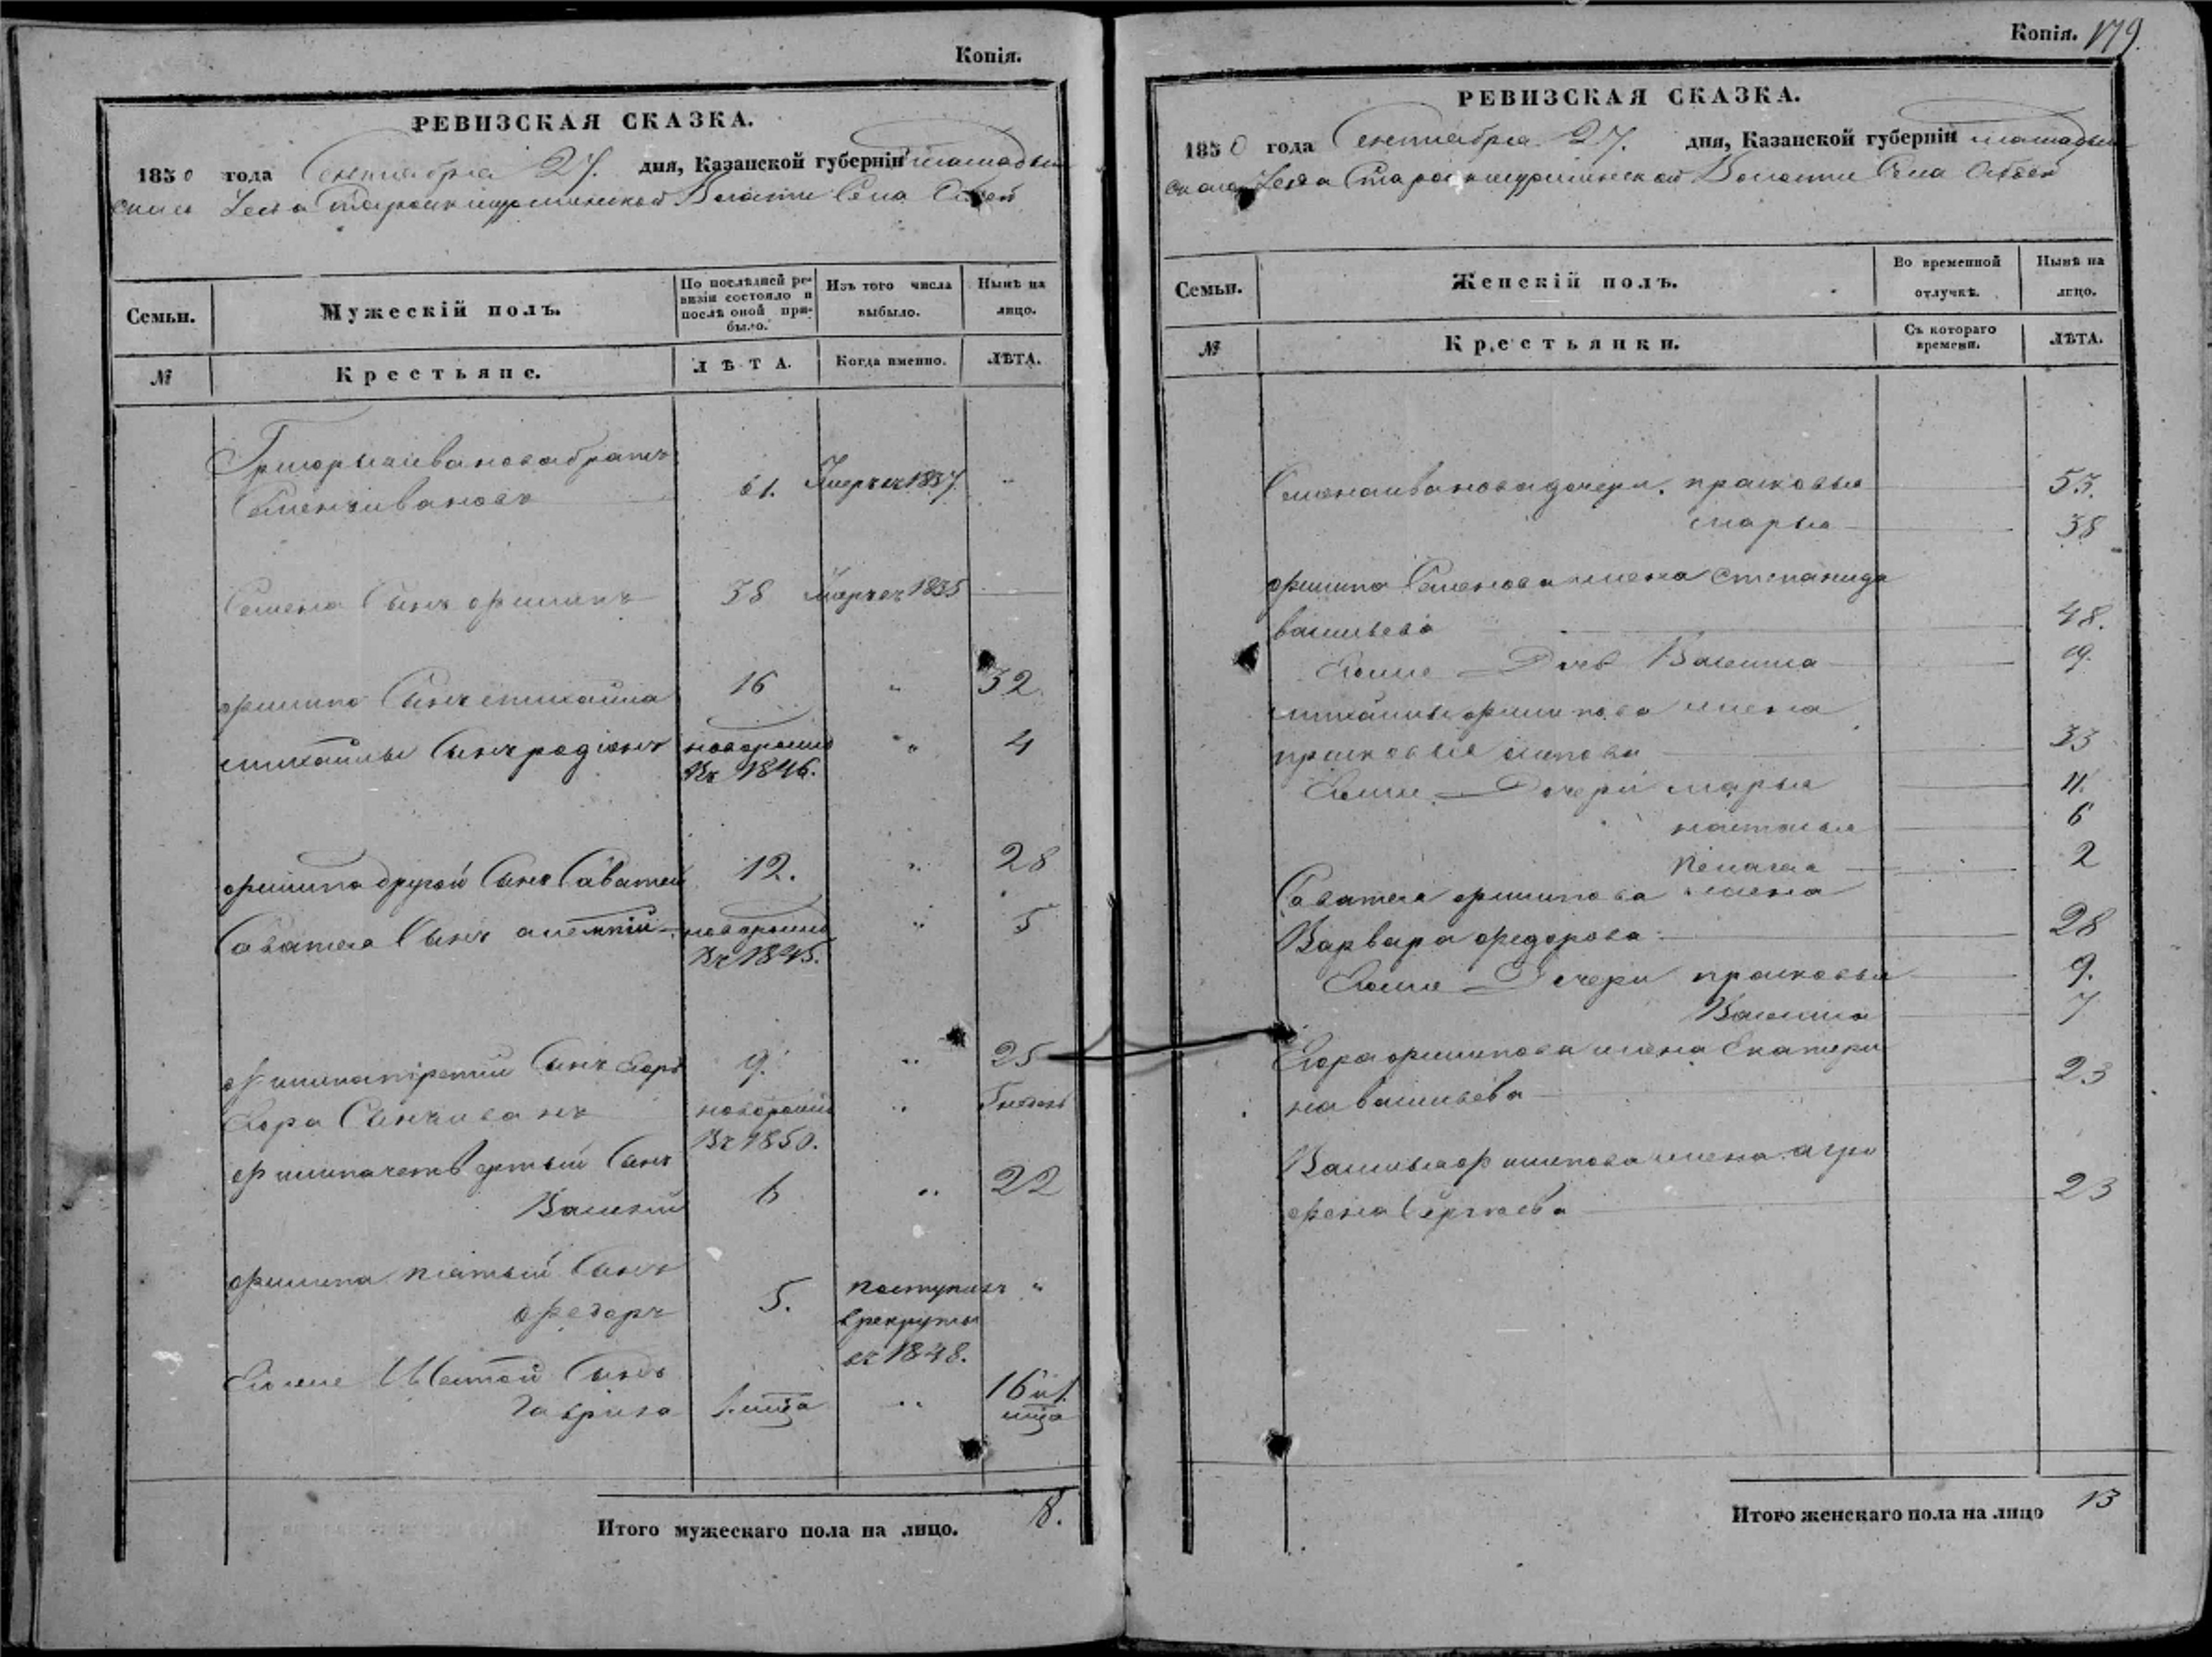 Копія.
РЕВИЗСКАЯ СКАЗКА.
1850 года Сентября 27. дня, Казанской губерніи
Уезда Волости Села
Семьи.
Мужескій полъ.
По послѣдней ре-
визіи состояло и
послѣ оной при-
было.
Изъ того числа
выбыло.
Нынѣ на
лицо.
№
Крестьяне.
ЛѢТА.
Когда именно.
ЛѢТА.
Григорья иванова братъ
Семенъ ивановъ 61. Умеръ въ 1837 "
Семена Сынъ филипъ 38 Умеръ въ 1835
филипа Сынъ михаила 16 " 32
михаилы Сынъ родіонъ новорожд " 4
Въ 1846.
филипа другой Сынъ Саватей 12. " 28
Саватея Сынъ новорожд " 5
Въ 1845.
филипа третій Сынъ Егоръ 9. " 25
Егора Сынъ иванъ новорожд "
Въ 1850.
филипа четвертый Сынъ
Василий 6 " 22
филипа пятый Сынъ
федоръ 5. поступилъ "
в рекруты
въ 1848.
Егоже Шестой Сынъ
Гаврила 1. мца " 16 и 1.
мца
Итого мужескаго пола на лицо. 8.
Копія. 179.
РЕВИЗСКАЯ СКАЗКА.
1850 года Сентября 27. дня, Казанской губерніи
Уезда Волости Села
Семьи.
Женскій полъ.
Во временной
отлучкѣ.
Нынѣ на
лицо.
№
Крестьянки.
Съ котораго
времени.
ЛѢТА.
Семена иванова дочери. прасковья 53.
марья 38
филипа Семенова жена степанида
васильева 48.
Егоже Дочь Василиса 19.
михаилы филипова жена
прасковья 33
Егоже Дочери марья 11.
наталья 6
пелагея 2
Саватея филипова жена
Варвара федорова 28
Егоже Дочери прасковья 9.
Василиса 7
Егора филипова жена Екатери
на васильева 23
Василья филипова жена агра
фена Сергеева 23
Итого женскаго пола на лицо 13